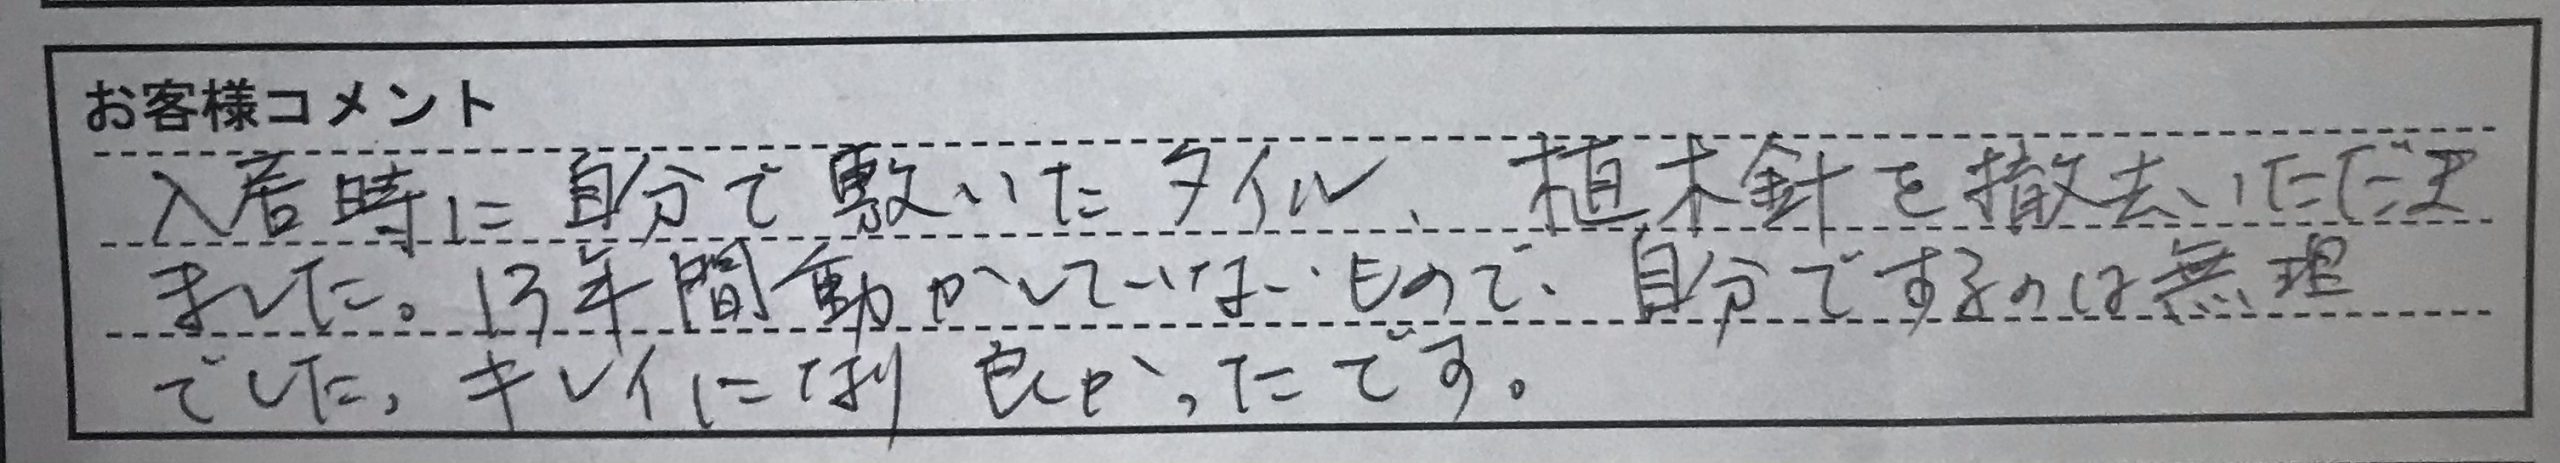 お客様コメント
入居時に自分で敷いたタイル、植木針を撤去いただき
ました。13年間動かしていないもので、自分でするのは無理
でした。キレイになり良かったです。